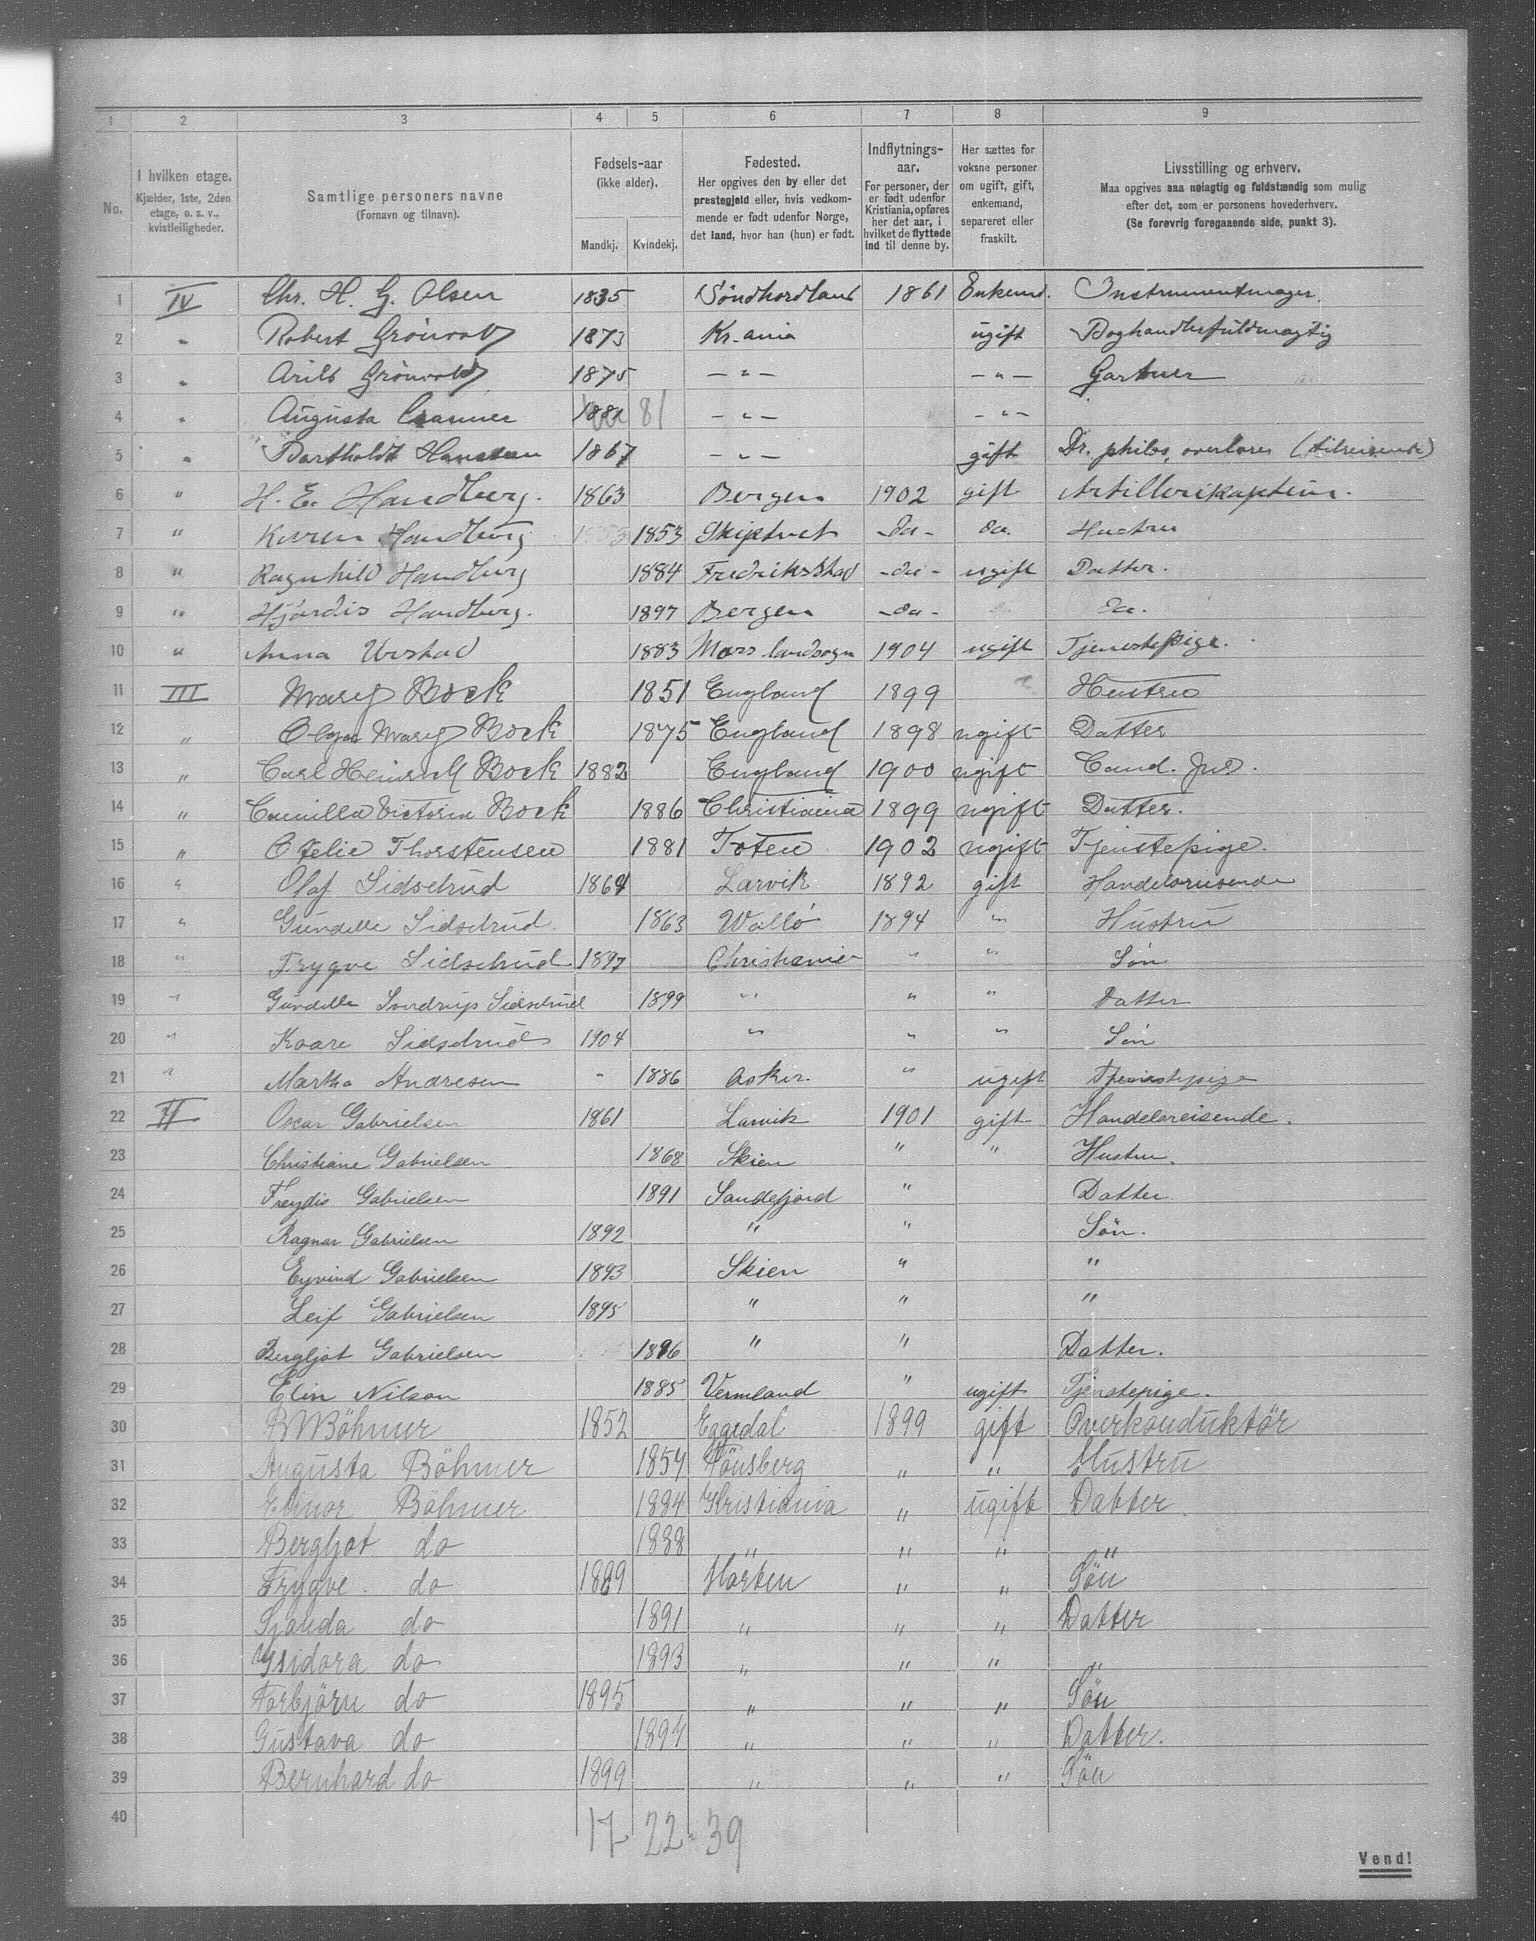 1 2 3 4 5 6 7 8 9
No.
I hvilken etage.
Kjælder, 1ste, 2den
etage, o. s. v.,
kvistleiligheder.
Samtlige personers navne
(Fornavn og tilnavn).
Fødsels-aar
(ikke alder).
Mandkj. Kvindekj.
Fødested.
Her opgives den by eller det
prestegjeld eller, hvis vedkom-
mende er født udenfor Norge,
det land, hvor han (hun) er født.
Indflytnings-
aar.
For personer, der
er født udenfor
Kristiania, opføres
her det aar, i
hvilket de flyttede
ind til denne by.
Her sættes for
voksne personer
om ugift, gift,
enkemand,
separeret eller
fraskilt.
Livsstilling og erhverv.
Maa opgives saa nøiagtig og fuldstændig som mulig
efter det, som er personens hovederhverv.
(Se forøvrig foregaaende side, punkt 3).
1 IV Chr. H. G. Olsen 1835 Söndhordland 1861 Enkemd. Instrumentmager.
2 " Robert Grönvold 1873 Kr.ania ugift Boghandlerfuldmægtig
3 " Arild Grönvold 1875 — " — — " — Gartner
4 " Augusta 1881 81 — " — — " —
5 " Bartholdt Hansteen 1867 — " — gift Dr. philos, overlærer (tilreisende)
6 " H. E. Handberg. 1863 Bergen 1902 gift Artillerikaptein.
7 " Karen Handberg 1853 Skiptvet - da - da. Hustru
8 " Ragnhild Handberg 1884 Fredriksstad - da - ugift Datter.
9 " Hjördis Handberg. 1897 Bergen - da - da.
10 " Anna 1883 Moss landsogn 1904 ugift Tjenestepige.
11 III Mary Bock 1851 England 1899 " Hustru
12 " Olga Mary Bock 1875 England 1898 ugift Datter
13 " Carl Heinrich Bock 1882 England 1900 ugift Cand. Jur.
14 " Camilla Victoria Bock 1886 Christiania 1899 ugift Datter.
15 " Ofelie Thorstensen 1881 Toten 1902 ugift Tjenstepige.
16 " Olaf Sidselrud 1864 Larvik 1892 gift Handelsreisende
17 " Gundelle Sidselrud. 1863 Vallö 1894 " Hustru
18 " Trygve Sidselrud 1897 Christiania " " Søn
19 " Gundelle Sverdrup Sidselrud 1899 " " " Datter
20 " Kaare Sidselrud 1904 " " " Søn
21 " Martha Andresen " 1886 Asker. " ugift Tjenestepige
22 II Oscar Gabrielsen 1861 Larvik 1901 gift Handelsreisende.
23 Christiane Gabrielsen 1868 Skien " " Hustru.
24 Freydis Gabrielsen 1891 Sandefjord " Datter.
25 Ragnar Gabrielsen 1892 " " Søn.
26 Eyvind Gabrielsen 1893 Skien " "
27 Leif Gabrielsen 1895 " " "
28 Bergljot Gabrielsen 1896 " " Datter.
29 Elin Nilson 1885 Vermland " ugift Tjenstepige.
30 B M Böhmer 1852 Eggedal 1899 gift Overkonduktör
31 Augusta Böhmer 1857 Tönsberg " " Hustru
32 Elinor Böhmer 1884 Christiania " ugift Datter
33 Bergljot do 1888 " " " "
34 Trygve do 1889 Horten " " Sön
35 do 1891 " " " Datter
36 Ysidora do 1893 " " " "
37 Torbjörn do 1895 " " " Sön
38 Gustava do 1897 " " " Datter.
39 Bernhard do 1899 " " " Sön
40 17 22 - 39
Vend!